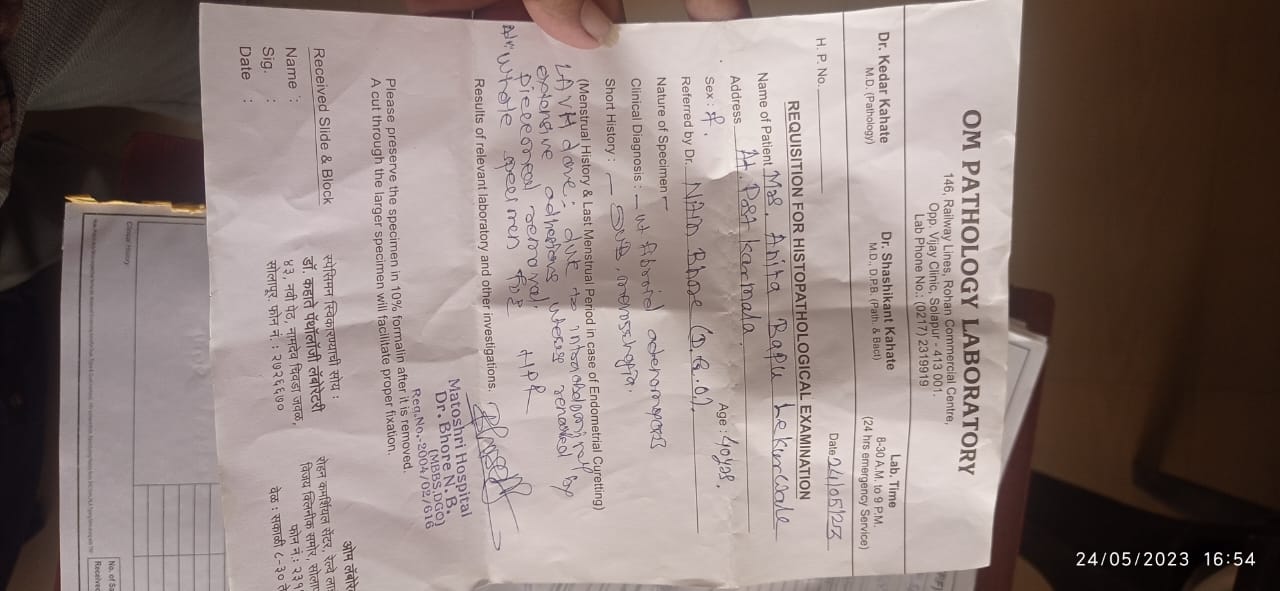 OM PATHOLOGY LABORATORY
146, Railway Lines, Rohan Commercial Centre,
Opp. Vijay Clinic, Solapur - 413 001.
Lab Phone No.: (0217) 2319919
Dr. Kedar Kahate
M.D. (Pathology)
Dr. Shashikant Kahate
M.D., D.P.B. (Path. & Bact)
Lab. Time
8-30 A.M. to 9 P.M.
(24 hrs emergency Service)
H. P. No.
Date 24/05/23
REQUISITION FOR HISTOPATHOLOGICAL EXAMINATION
Name of Patient Mrs. Anita Bapu Lekurwale
Address At. Post Karmala.
Sex: f. Age: 40yrs.
Referred by Dr. Nitin Bhore (D.G.O).
Nature of Specimen -
Clinical Diagnosis: - ut fibroid
Short History:
(Menstrual History & Last Menstrual Period in case of Endometrial Curetting)
LAVH done; due to
extensive adhesions
piecemeal removal.
whole HPR
Results of relevant laboratory and other investigations.
Matoshri Hospital
Dr. Bhore N B.
(MBBS,DGO)
Reg.No.-2004/02/616
Please preserve the specimen in 10% formalin after it is removed.
A cut through the larger specimen will facilitate proper fixation.
Received Slide & Block
Name :
Sig. :
Date :
स्पेसिमन स्विकारण्याची सोय :
डॉ. कहाते पॅथॉलॉजी लॅबोरेटरी
४३, नवी पेठ, नामदेव चिवडा जवळ,
सोलापूर, फोन नं. : २७२६६७०
ओम लॅबोरे
रोहन कमर्शियल सेंटर, रेल्वे ला
विजय क्लिनीक समोर, सोला
फोन नं. : २३१
वेळ : सकाळी ८-३० ते
Clinical History
No. of S
Receive
24/05/2023 16:54